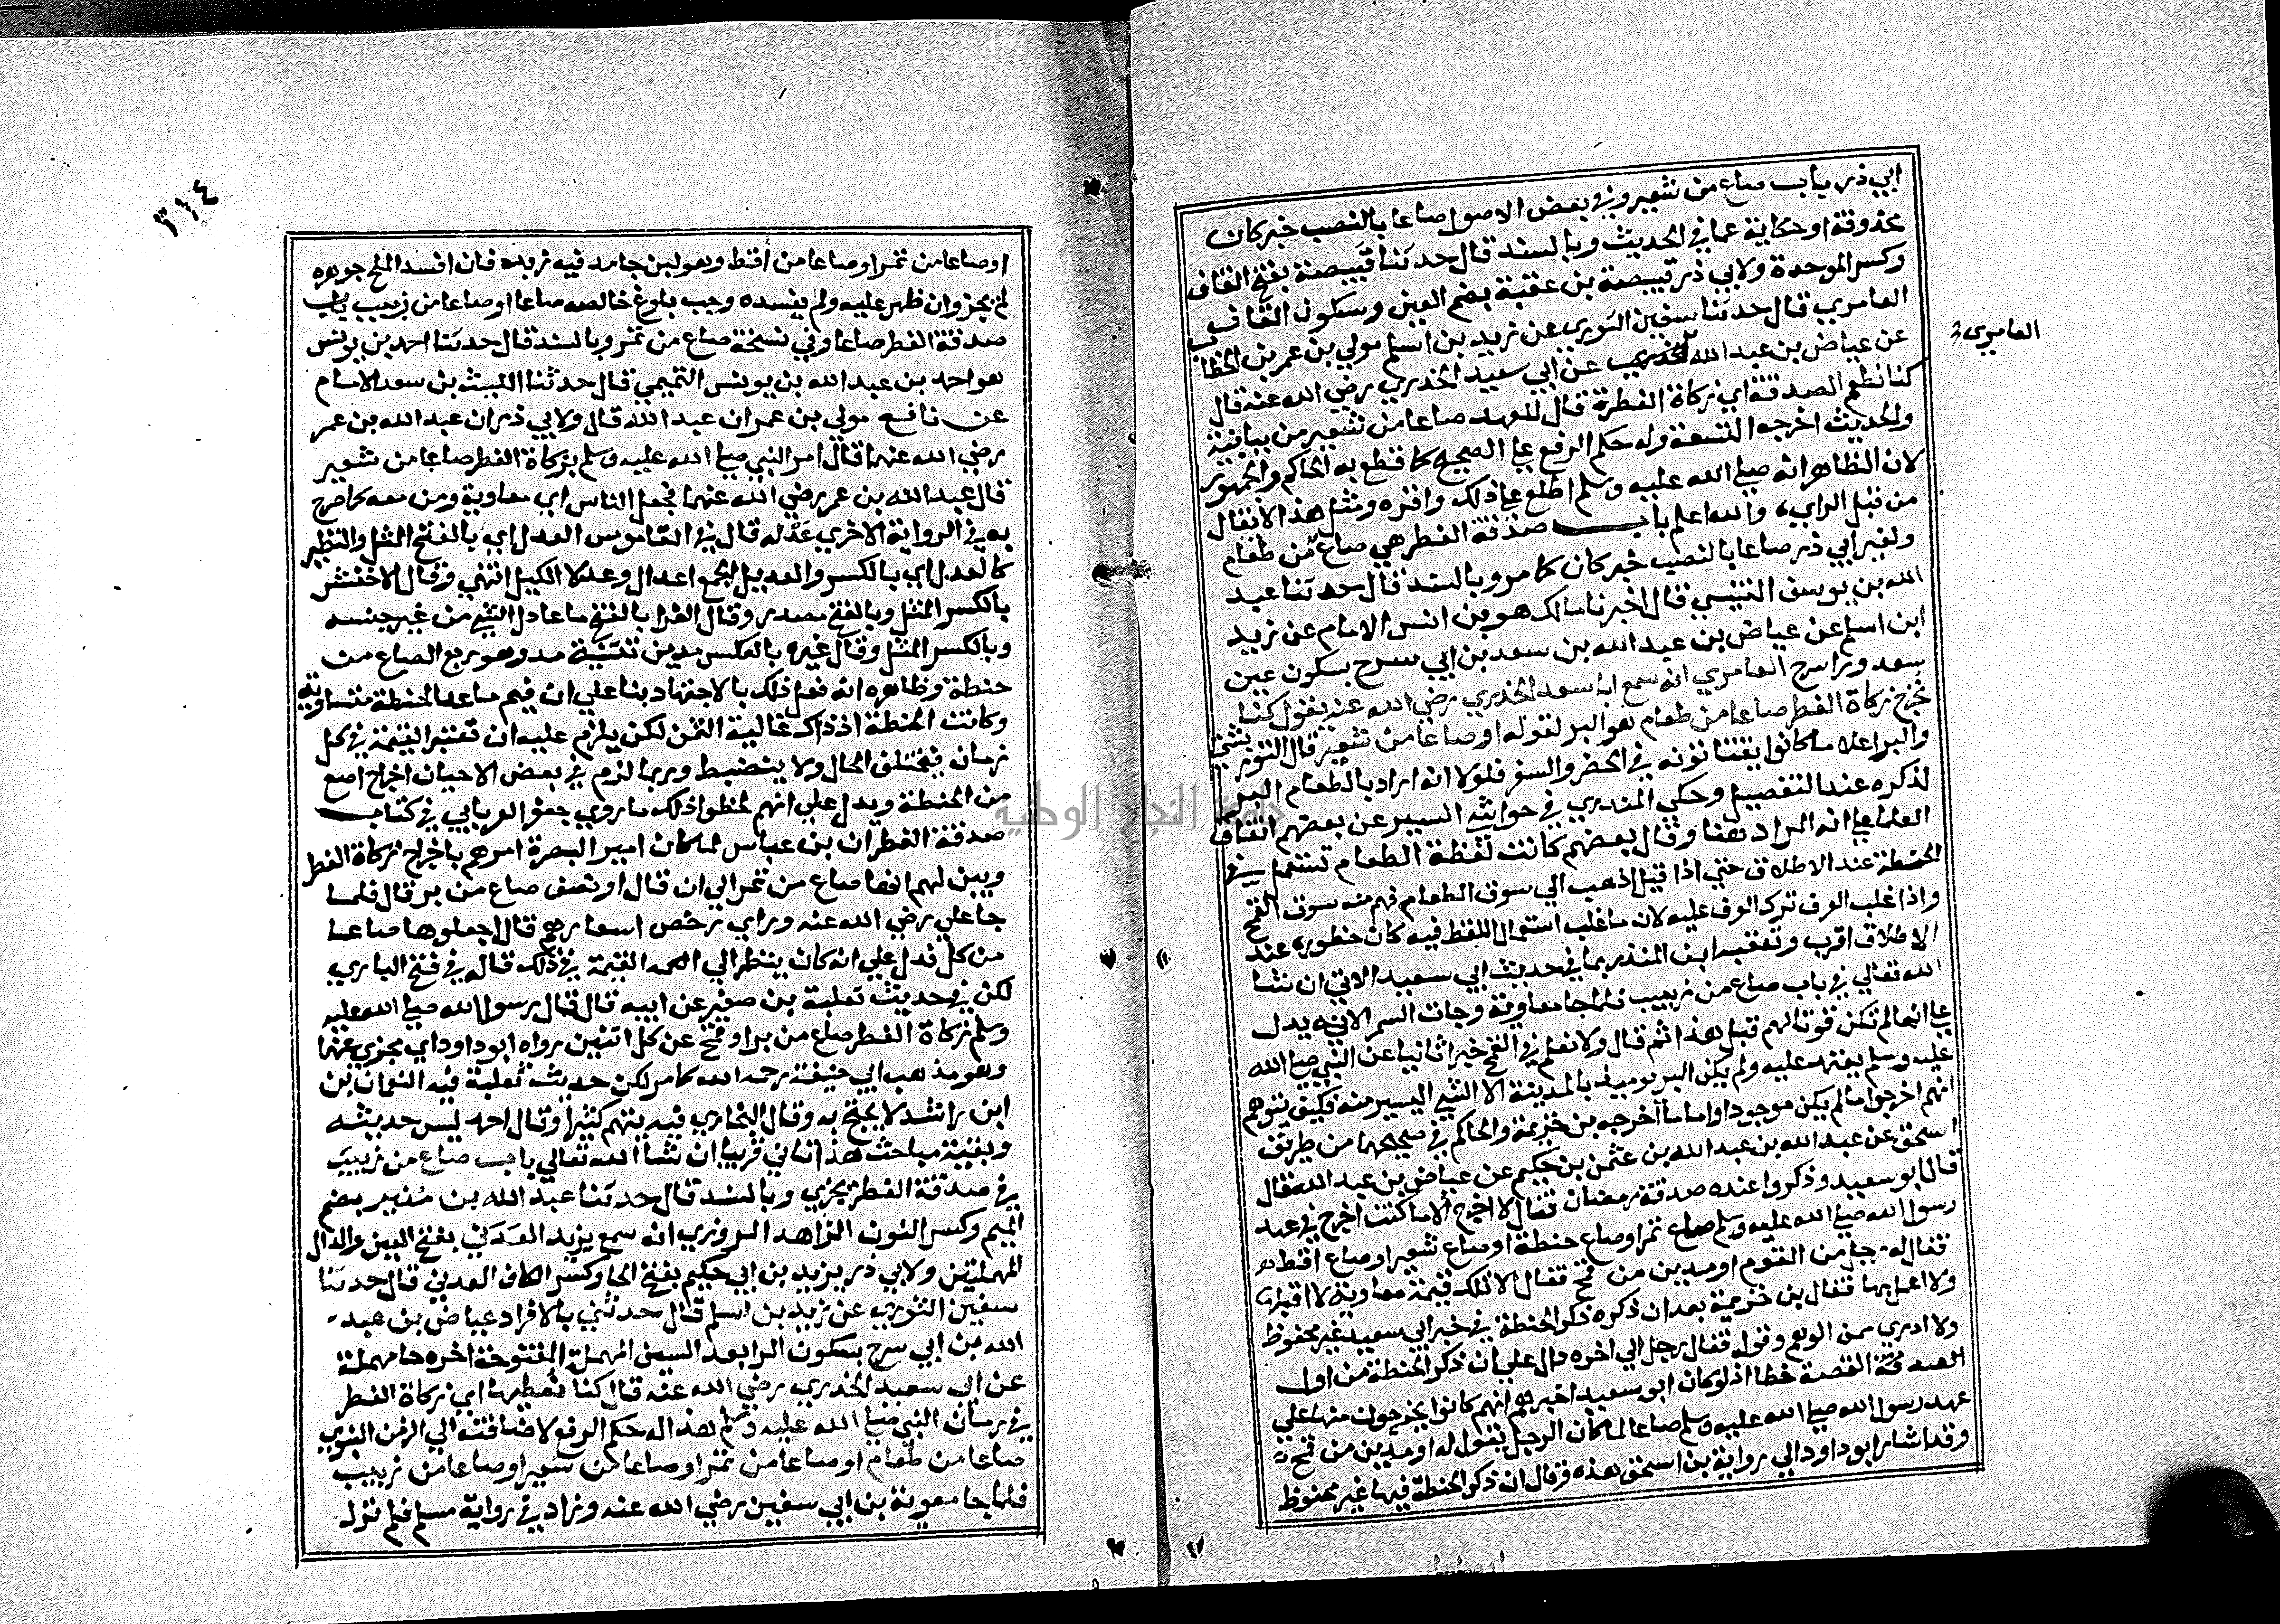 ابي ذر باب صاع من شعير وفي بعض الاصول صاعا بالنصب خبر كان
محذوفة او حكاية عما في الحديث وبالسند قال حدثنا قبيصة بفتح القاف
وكسر الموحدة ولابي ذر قبيصة بن عقبة بضم العين وسكون القاف
العامري قال حدثنا سفين الثوري عن زيد بن اسلم مولي بن عمر بن الخطاب
العامري
عن عياض بن عبد الله عن ابي سعيد الخدري رضي الله عنه قال
كنا نطعم الصدقة اي زكاة الفطرة قال للعهد صاعا من شعير من بيانية
والحديث اخرجه الستة وله حكم الرفع علي الصحيح كما قطع به الحاكم والجمهور
لان الظاهر انه صلي الله عليه وسلم اطلع علي ذلك واقره ومثل هذا لا يقال
من قبل الراي والله اعلم باب صدقة الفطر هي صاع من طعام
ولغير ابي ذر صاعا بالنصب خبر كان كما مر وبالسند قال حدثنا عبد
الله بن يوسف التنيسي قال اخبرنا مالك هو بن انس الامام عن زيد
ابن اسلم عن عياض بن عبد الله بن سعد بن ابي سرح بسكون عين
سعد وراسرح العامري انه سمع ابا سعد الخدري رضي الله عنه يقول كنا
نخرج زكاة الفطر صاعا من طعام هو البر لقوله او صاعا من شعير قال التوربشتي
والبر اعلا ما كانوا يقتاتونه في الحضر والسفر فلولا انه اراد بالطعام البر
لذكره عند التفصيل وحكي المنذري في حواشي السنن عن بعضهم اتفاق
العلما علي انه المراد هنا وقال بعضهم كانت لفظة الطعام تستعمل في
الحنطة عند الاطلاق حتي اذا قيل اذهب الي سوق الطعام فهم منه سوق القمح
واذا غلب العرف ترك العرف عليه لان ما غلب استعمال اللفظ فيه كان خطوره عند
الاطلاق اقرب وتعقبه ابن المنذر بما في حديث ابي سعيد الاتي ان شا
الله تعالي في باب صاع من زبيب فلما جا معاوية وجات السمرا لانه يدل
علي انها لم تكن قوتا لهم قبل هذا ثم قال ولا نعلم في القمح خبرا ثابتا عن النبي صلي الله
عليه وسلم يعتمد عليه ولم يكن البر يوميذ بالمدينة الا الشي اليسير منه فكيف يتوهم
انهم اخرجوا ما لم يكن موجودا واما ما اخرجه بن خزيمة والحاكم في صحيحهما من طريق
اسحق عن عبد الله بن عبد الله بن عثمن بن حكيم عن عياض بن عبد الله قال
قال ابو سعيد وذكروا عنده صدقة رمضان فقال لا اخرج الا ما كنت اخرج في عهد
رسول الله صلي الله عليه وسلم صاع تمر او صاع حنطة او صاع شعير او صاع اقط
فقال له رجل من القوم او مدين من قمح فقال لا تلك قيمة معاوية لا اقبلها
ولا اعمل بها فقال بن خزيمة بعد ان ذكره ذكر الحنطة في خبر ابي سعيد غير محفوظ
ولا ادري ممن الوهم وقوله فقال رجل الي اخره دال علي ان ذكر الحنطة من اول
القصة خطا اذ لو كان ابو سعيد اخبرهم انهم كانوا يخرجون منها علي
عهد رسول الله صلي الله عليه وسلم صاعا لما كان الرجل يقول له او مدين من قمح
وقد اشار ابو داود الي رواية بن اسحق هذه وقال ان ذكر الحنطة فيها غير محفوظ
او صاعا
٣١٤
او صاعا من تمر او صاعا من أقط وهو لبن جامد فيه زبده فان افسد الملح جوهره
لم يجز وان ظهر عليه ولم يفسده وجب بلوغ خالصه صاعا او صاعا من زبيب باب
صدقة الفطر صاعا وفي نسخة صاع من تمر وبالسند قال حدثنا احمد بن يونس
هو احمد بن عبد الله بن يونس التميمي قال حدثنا الليث بن سعد الامام
عن نافع مولي بن عمر ان عبد الله قال ولابي ذر ان عبد الله بن عمر
رضي الله عنهما قال امر النبي صلي الله عليه وسلم بزكاة الفطر صاعا من شعير
قال عبد الله بن عمر رضي الله عنهما فجعل الناس اي معاوية ومن معه كما صرح
به في الرواية الاخري عدله قال في القاموس العدل اي بالفتح المثل والنظير
كالعدل اي بالكسر والعديل الجمع اعدال وعدلا الكيل انتهي وقال الاخفش
بالكسر المثل وبالفتح مصدر وقال الفرا بالفتح ما عادل الشي من غير جنسه
وبالكسر المثل وقال غيره بالعكس مدين تثنية مد وهو ربع الصاع من
حنطة وظاهره انه فعل ذلك بالاجتهاد بنا علي ان قيم ما عدا الحنطة متساوية
وكانت الحنطة اذ ذاك غالية الثمن لكن يلزم عليه ان تعتبر القيمة في كل
زمان فيختلف الحال ولا ينضبط وربما لزم في بعض الاحيان اخراج اصع
من الحنطة ويدل علي انهم لحظوا ذلك ما روي جعفر الفريابي في كتاب
صدقة الفطر ان بن عباس لما كان امير البصرة امرهم باخراج زكاة الفطر
وبين لهم انها صاع من تمر الي ان قال او نصف صاع من بر قال فلما
جا علي رضي الله عنه وراي رخص اسعارهم قال اجعلوها صاعا
من كل فدل علي انه كان ينظر الي القيمة في ذلك قاله في فتح الباري
لكن في حديث ثعلبة بن صغير عن ابيه قال قال رسول الله صلي الله عليه
وسلم زكاة الفطر صاع من بر او قمح عن كل اثنين رواه ابو داود اي مجزي عنهما
وهو مذهب ابي حنيفة رحمه الله كما مر لكن حديث ثعلبة فيه النعمان بن
ابن راشد لا يحتج به وقال البخاري فيه يتهم كثيرا وقال احمد ليس حديثه
وبقية مباحث هذا تاتي قريبا ان شا الله تعالي باب صاع من زبيب
في صدقة الفطر يجزي وبالسند قال حدثنا عبد الله بن منير بضم
الميم وكسر النون الزاهد المروزي انه سمع يزيد العدني بفتح العين والدال
المهملتين ولابي ذر يزيد بن ابي حكيم بفتح الحا وكسر الكاف العدني قال حدثنا
سفين الثوري عن زيد بن اسلم قال حدثني بالافراد عياض بن عبد
الله بن ابي سرح بسكون الرا بعد السين المهملة المفتوحة اخره حا مهملة
عن ابي سعيد الخدري رضي الله عنه قال كنا نعطيها اي زكاة الفطر
في زمان النبي صلي الله عليه وسلم هذا له حكم الرفع لاضافته الي الزمن النبوي
صاعا من طعام او صاعا من تمر او صاعا من شعير او صاعا من زبيب
فلما جا معوية بن ابي سفين رضي الله عنه وزاد في رواية مسلم فلم نزل
جامعة النجاح الوطنية